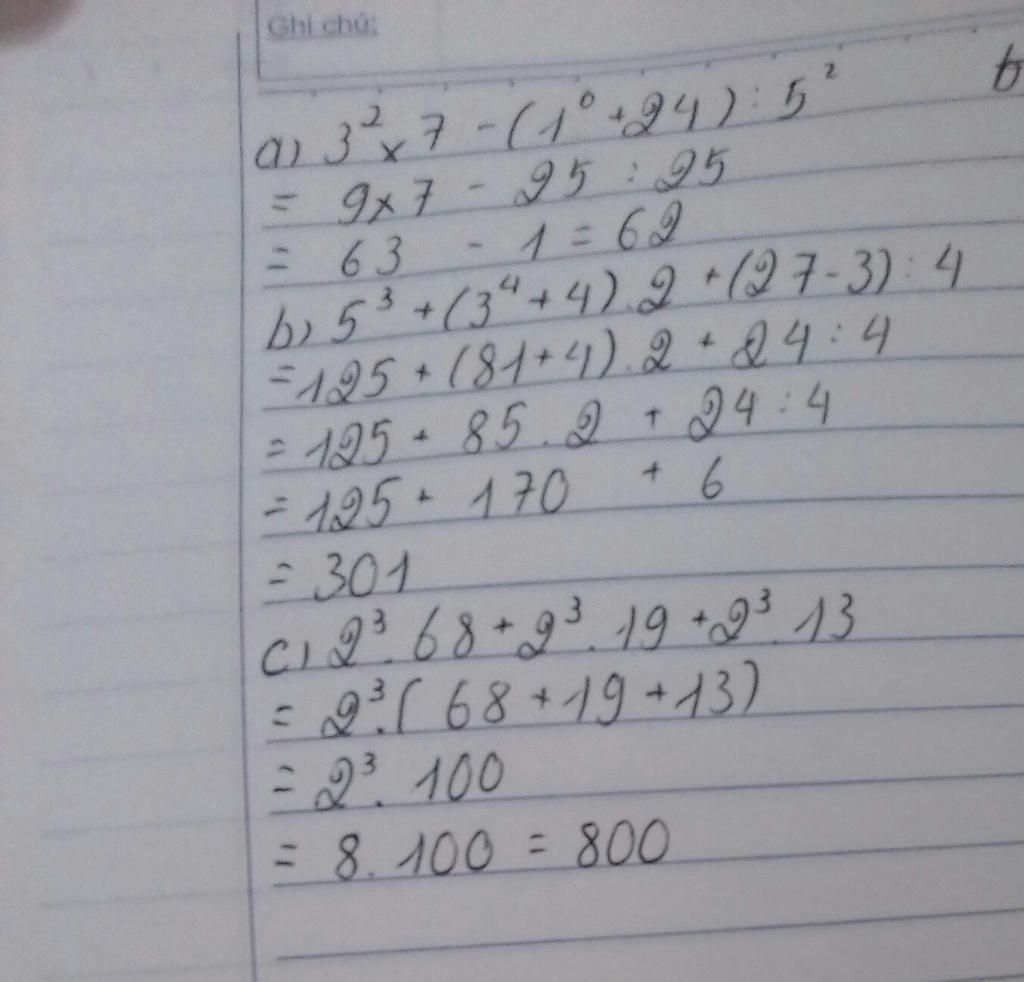 Ghi chú:
a) 3² x 7 - (1⁰ + 24) : 5²
= 9 x 7 - 25 : 25
= 63 - 1 = 62
b) 5³ + (3⁴ + 4) . 2 + (27 - 3) : 4
= 125 + (81 + 4) . 2 + 24 : 4
= 125 + 85 . 2 + 24 : 4
= 125 + 170 + 6
= 301
c) 2³ . 68 + 2³ . 19 + 2³ . 13
= 2³ . ( 68 + 19 + 13)
= 2³ . 100
= 8 . 100 = 800